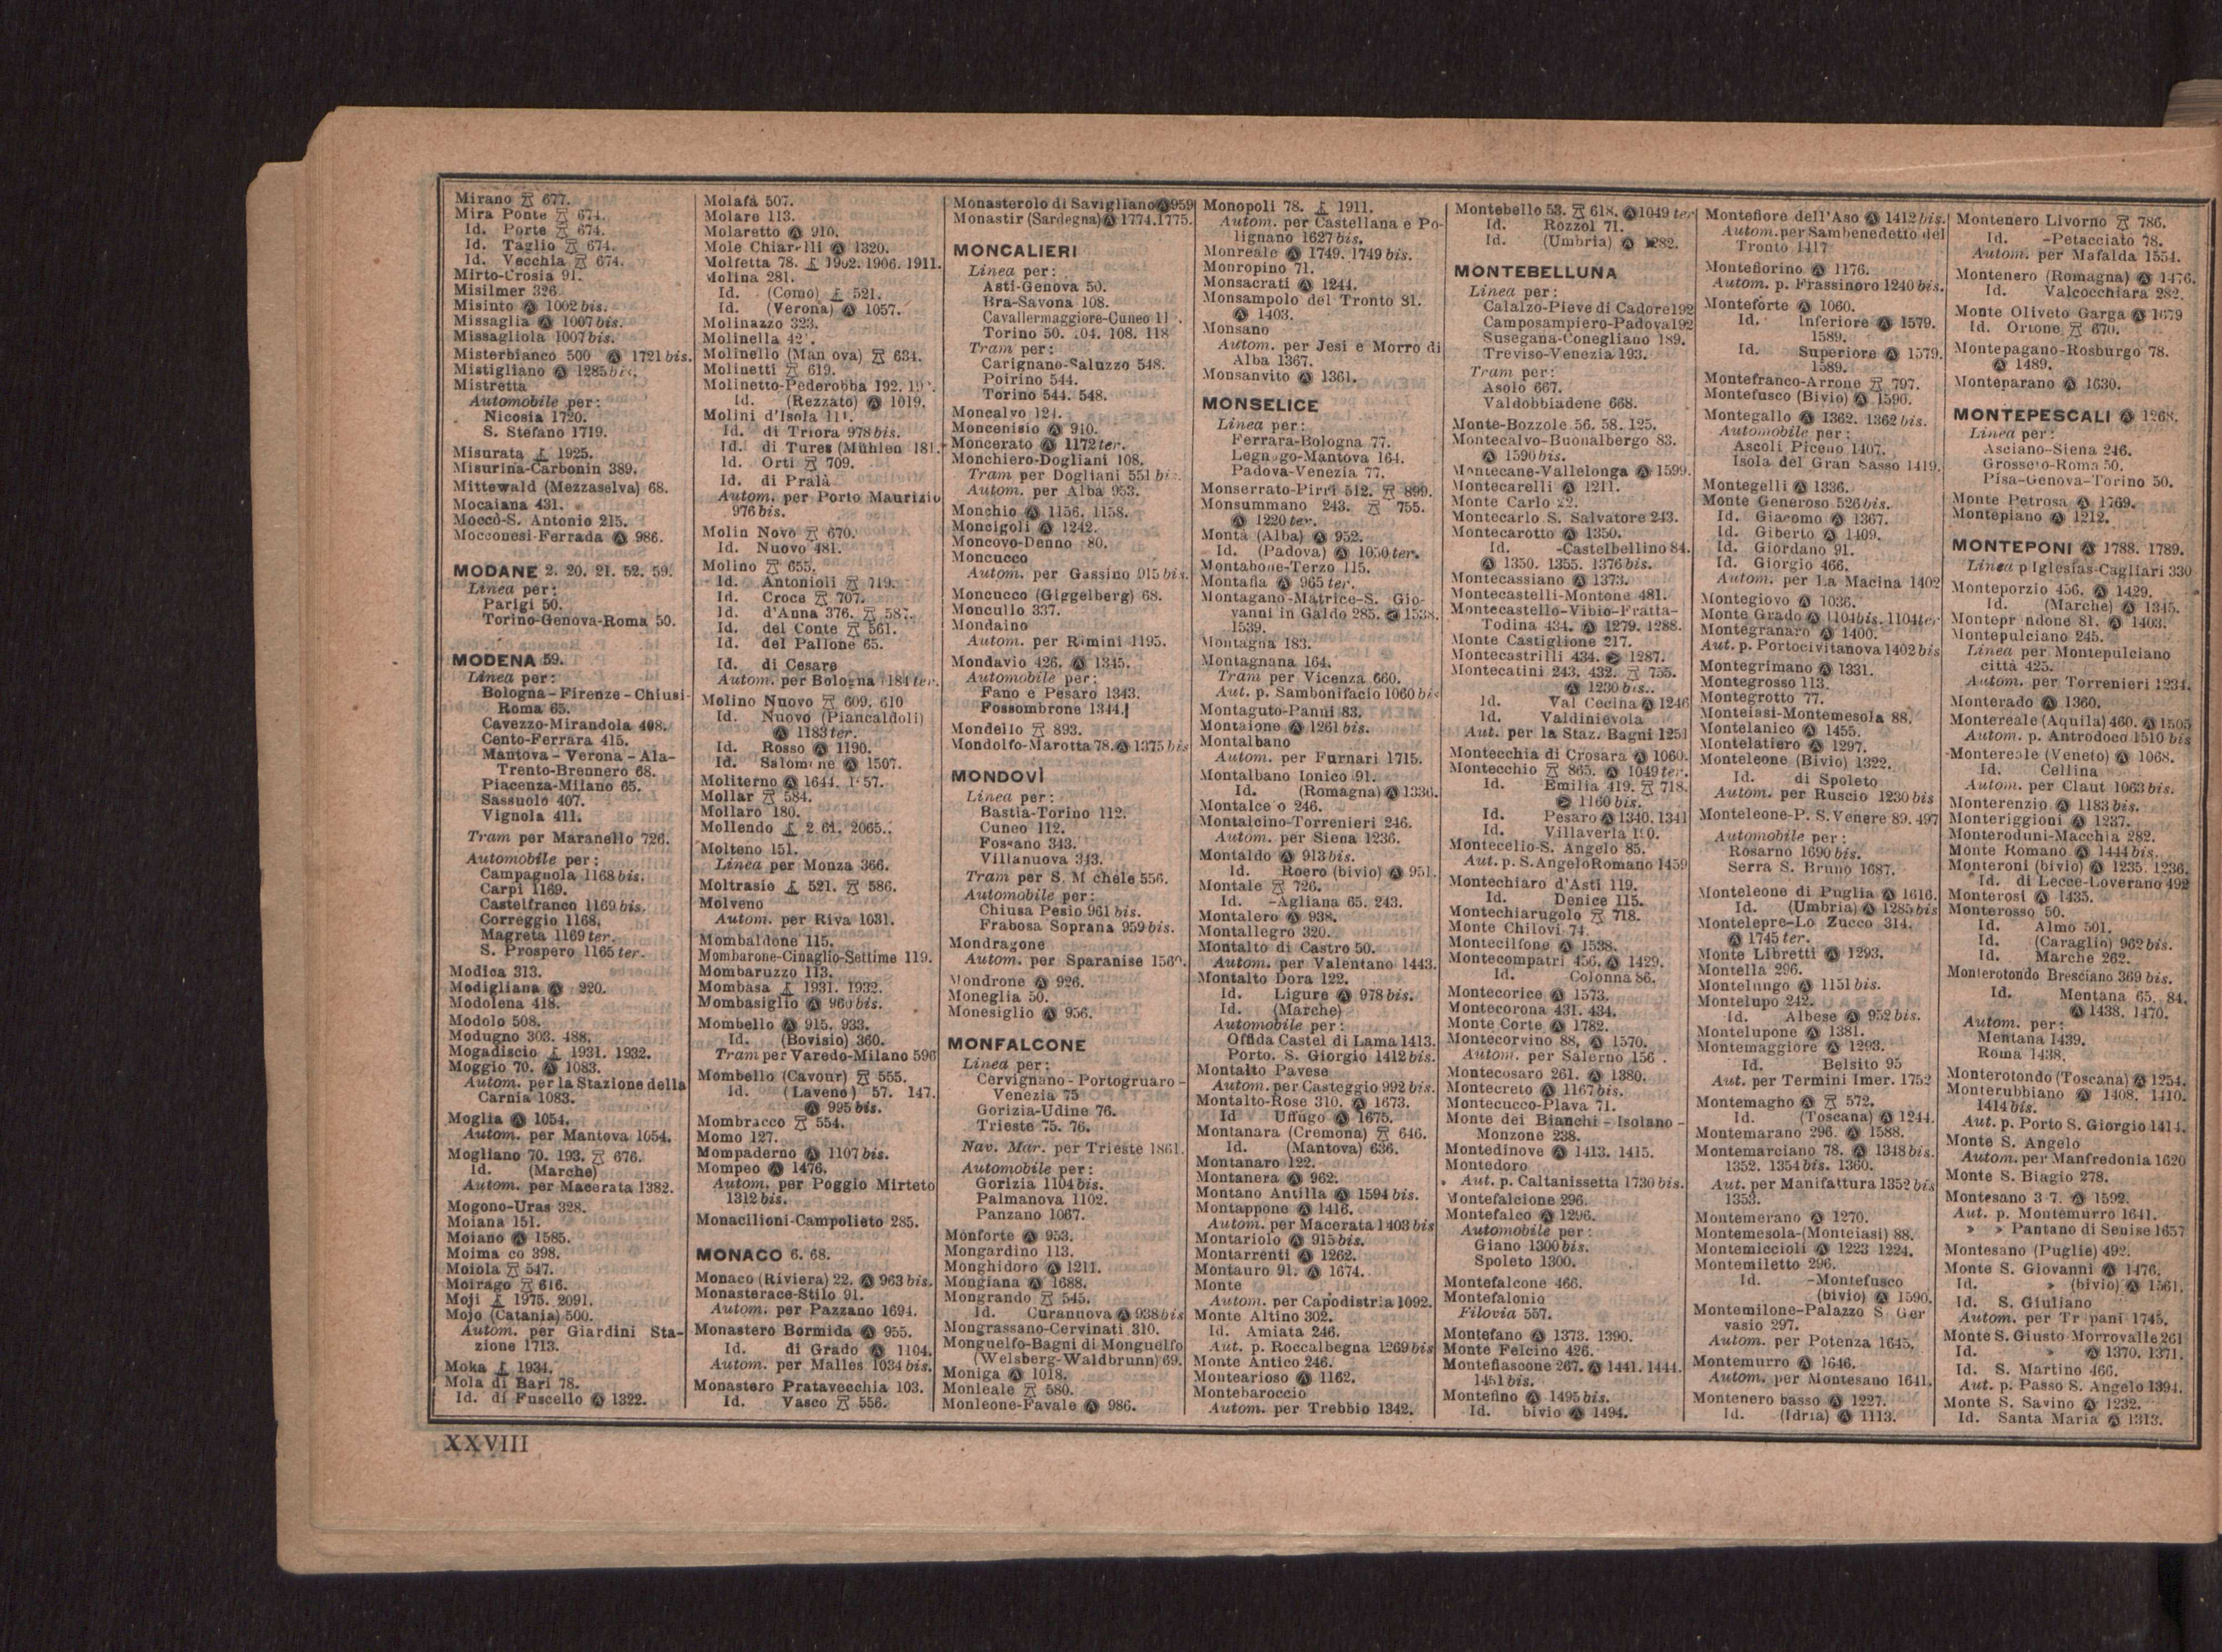 Mirano 677.
Mira Ponte 674.
Id. Porte 674.
Id. Taglio 674.
Id. Vecchia 674.
Mirto-Crosia 91.
Misilmer 326
Misinto Ⓐ 1002 bis.
Missaglia Ⓐ 1007 bis.
Missagliola 1007 bis.
Misterbianco 500 Ⓐ 1721 bis.
Mistigliano Ⓐ 1285 bis.
Mistretta
Automobile per:
Nicosia 1720.
S. Stefano 1719.
Misurata 1925.
Misurina-Carbonin 389.
Mittewald (Mezzaselva) 68.
Mocaiana 431.
Moccò-S. Antonio 215.
Mocconesi-Ferrada Ⓐ 986.
MODANE 2. 20. 21. 52. 59.
Linea per:
Parigi 50.
Torino-Genova-Roma 50.
MODENA 59.
Linea per:
Bologna - Firenze - Chiusi-
Roma 65.
Cavezzo-Mirandola 408.
Cento-Ferrara 415.
Mantova - Verona - Ala-
Trento-Brennero 68.
Piacenza-Milano 65.
Sassuolo 407.
Vignola 411.
Tram per Maranello 726.
Automobile per:
Campagnola 1168 bis.
Carpi 1169.
Castelfranco 1169 bis.
Correggio 1168.
Magreta 1169 ter.
S. Prospero 1165 ter.
Modica 313.
Modigliana Ⓐ 220.
Modolena 418.
Modolo 508.
Modugno 303. 488.
Mogadiscio 1931. 1932.
Moggio 70. Ⓐ 1083.
Autom. per la Stazione della
Carnia 1083.
Moglia Ⓐ 1054.
Autom. per Mantova 1054.
Mogliano 70. 193. 676.
Id. (Marche)
Autom. per Macerata 1382.
Mogono-Uras 328.
Moiana 151.
Moiano Ⓐ 1585.
Moima co 398.
Moiola 547.
Moirago 616.
Moji 1975. 2091.
Mojo (Catania) 500.
Autom. per Giardini Sta-
zione 1713.
Moka 1934.
Mola di Bari 78.
Id. di Fuscello Ⓐ 1322.
Molafà 507.
Molare 113.
Molaretto Ⓐ 910.
Mole Chiarelli Ⓐ 1320.
Molfetta 78. 1902. 1906. 1911.
Molina 281.
Id. (Como) 521.
Id. (Verona) Ⓐ 1057.
Molinazzo 323.
Molinella
Molinello (Man ova) 634.
Molinetti 619.
Molinetto-Pederobba 192.
Id. (Rezzato) Ⓐ 1019.
Molini d'Isola
Id. di Triora 978 bis.
Id. di Tures (Mühlen 181.
Id. Orti 709.
Id. di Pralà
Autom. per Porto Maurizio
976 bis.
Molin Novo 670.
Id. Nuovo 481.
Molino 655.
Id. Antonioli 719.
Id. Croce 707.
Id. d'Anna 376. 587.
Id. del Conte 561.
Id. del Pallone 65.
Id. di Cesare
Autom. per Bologna 1184 ter.
Molino Nuovo 609. 610
Id. Nuovo (Piancaldoli)
Ⓐ 1183 ter.
Id. Rosso Ⓐ 1190.
Id. Salom ne Ⓐ 1507.
Moliterno Ⓐ 1644.
Mollar 584.
Mollaro 180.
Mollendo 2065.
Molteno 151.
Linea per Monza 366.
Moltrasio 521. 586.
Molveno
Autom. per Riva 1031.
Mombaldone 115.
Mombarone-Cinaglio-Settime 119.
Mombaruzzo 113.
Mombasa 1931. 1932.
Mombasiglio Ⓐ 960 bis.
Mombello Ⓐ 915. 933.
Id. (Bovisio) 360.
Tram per Varedo-Milano 596
Mombello (Cavour) 555.
Id. (Laveno) 57. 147.
Ⓐ 995 bis.
Mombracco 554.
Momo 127.
Mompaderno Ⓐ 1107 bis.
Mompeo Ⓐ 1476.
Autom. per Poggio Mirteto
1312 bis.
Monacilioni-Campolieto 285.
MONACO 6. 68.
Monaco (Riviera) 22. Ⓐ 963 bis.
Monasterace-Stilo 91.
Autom. per Pazzano 1694.
Monastero Bormida Ⓐ 955.
Id. di Grado Ⓐ 1104.
Autom. per Malles 1034 bis.
Monastero Pratavecchia 103.
Id. Vasco 556.
Monasterolo di Savigliano Ⓐ 959
Monastir (Sardegna) Ⓐ 1774. 1775.
MONCALIERI
Linea per:
Asti-Genova 50.
Bra-Savona 108.
Cavallermaggiore-Cuneo
Torino 50. 104. 108. 118
Tram per:
Carignano-Saluzzo 548.
Poirino 544.
Torino 544. 548.
Moncalvo 124.
Moncenisio Ⓐ 910.
Moncerato Ⓐ 1172 ter.
Monchiero-Dogliani 108.
Tram per Dogliani 551 bis.
Autom. per Alba 953.
Monchio Ⓐ 1156. 1158.
Moncigoli Ⓐ 1242.
Moncovo-Denno 80.
Moncucco
Autom. per Gassino 915 bis.
Moncucco (Giggelberg) 68.
Moncullo 337.
Mondaino
Autom. per Rimini 1195.
Mondavio 426. Ⓐ 1345.
Automobile per:
Fano e Pesaro 1343.
Fossombrone 1344.
Mondello 893.
Mondolfo-Marotta 78. Ⓐ 1375 bis
MONDOVÌ
Linea per:
Bastia-Torino 112.
Cuneo 112.
Fossano 343.
Villanuova 343.
Tram per S. M chele 556.
Automobile per:
Chiusa Pesio 961 bis.
Frabosa Soprana 959 bis.
Mondragone
Autom. per Sparanise
Mondrone Ⓐ 926.
Moneglia 50.
Monesiglio Ⓐ 956.
MONFALCONE
Linea per:
Cervignano - Portogruaro -
Venezia 75
Gorizia-Udine 76.
Trieste 75. 76.
Nav. Mar. per Trieste 1861.
Automobile per:
Gorizia 1104 bis.
Palmanova 1102.
Panzano 1067.
Monforte Ⓐ 953.
Mongardino 113.
Monghidoro Ⓐ 1211.
Mongiana Ⓐ 1688.
Mongrando 545.
Id. Curanuova Ⓐ 938 bis
Mongrassano-Cervinati 310.
Monguelfo-Bagni di Monguelfo
(Welsberg-Waldbrunn) 69.
Moniga Ⓐ 1018.
Monleale 580.
Monleone-Favale Ⓐ 986.
Monopoli 78. 1911.
Autom. per Castellana e Po-
lignano 1627 bis.
Monreale Ⓐ 1749. 1749 bis.
Monropino 71.
Monsacrati Ⓐ 1244.
Monsampolo del Tronto 81.
Ⓐ 1403.
Monsano
Autom. per Jesi e Morro di
Alba 1367.
Monsanvito Ⓐ 1361.
MONSELICE
Linea per:
Ferrara-Bologna 77.
Legnago-Mantova 164.
Padova-Venezia 77.
Monserrato-Pirri 512. 899.
Monsummano 243. 755.
Ⓐ 1220 ter.
Montà (Alba) Ⓐ 952.
Id. (Padova) Ⓐ 1050 ter.
Montabone-Terzo 115.
Montafia Ⓐ 965 ter.
Montagano-Matrice-S. Gio-
vanni in Galdo 285. 1538.
1539.
Montagna 183.
Montagnana 164.
Tram per Vicenza 660.
Aut. p. Sambonifacio 1060 bis
Montaguto-Panni 83.
Montaione Ⓐ 1261 bis.
Montalbano
Autom. per Furnari 1715.
Montalbano Ionico 91.
Id. (Romagna) Ⓐ 1336.
Montalce o 246.
Montalcino-Torrenieri 246.
Autom. per Siena 1236.
Montaldo Ⓐ 913 bis.
Id. Roero (bivio) Ⓐ 951.
Montale 726.
Id. -Agliana 65. 243.
Montalero Ⓐ 938.
Montallegro 320.
Montalto di Castro 50.
Autom. per Valentano 1443.
Montalto Dora 122.
Id. Ligure Ⓐ 978 bis.
Id. (Marche)
Automobile per:
Offida Castel di Lama 1413.
Porto. S. Giorgio 1412 bis.
Montalto Pavese
Autom. per Casteggio 992 bis.
Montalto-Rose 310. Ⓐ 1673.
Id Uffugo Ⓐ 1675.
Montanara (Cremona) 646.
Id. (Mantova) 636.
Montanaro 122.
Montanera Ⓐ 962.
Montano Antilla Ⓐ 1594 bis.
Montappone Ⓐ 1416.
Autom. per Macerata 1403 bis
Montariolo Ⓐ 915 bis.
Montarrenti Ⓐ 1262.
Montauro 91. Ⓐ 1674.
Monte
Autom. per Capodistria 1092.
Monte Altino 302.
Id. Amiata 246.
Aut. p. Roccalbegna 1269 bis
Monte Antico 246.
Montearioso Ⓐ 1162.
Montebaroccio
Autom. per Trebbio 1342.
Montebello 53. 618. Ⓐ 1049 ter
Id. Rozzol 71.
Id. (Umbria) Ⓐ 1282.
MONTEBELLUNA
Linea per:
Calalzo-Pieve di Cadore 192
Camposampiero-Padova 192
Susegana-Conegliano 189.
Treviso-Venezia 193.
Tram per:
Asolo 667.
Valdobbiadene 668.
Monte-Bozzole 56. 58. 125.
Montecalvo-Buonalbergo 83.
Ⓐ 1590 bis.
Montecane-Vallelonga Ⓐ 1599.
Montecarelli Ⓐ 1211.
Monte Carlo 22.
Montecarlo S. Salvatore 243.
Montecarotto Ⓐ 1350.
Id. -Castelbellino 84.
Ⓐ 1350. 1355. 1376 bis.
Montecassiano Ⓐ 1373.
Montecastelli-Montone 481.
Montecastello-Vibio-Fratta-
Todina 434. Ⓐ 1279. 1288.
Monte Castiglione 217.
Montecastrilli 434. 1287.
Montecatini 243. 432. 755.
Ⓐ 1230 bis.
Id. Val Cecina Ⓐ 1246
Id. Valdinievola
Aut. per la Staz. Bagni 1251
Montecchia di Crosara Ⓐ 1060.
Montecchio 865. Ⓐ 1049 ter.
Id. Emilia 419. 718.
1160 bis.
Id. Pesaro Ⓐ 1340. 1341
Id. Villaverla
Montecelio-S. Angelo 85.
Aut. p. S. Angelo Romano 1459
Montechiaro d'Asti 119.
Id. Denice 115.
Montechiarugolo 718.
Monte Chilovi 74.
Montecilfone Ⓐ 1538.
Montecompatri 456. Ⓐ 1429.
Id. Colonna 86.
Montecorice Ⓐ 1573.
Montecorona 431. 434.
Monte Corte Ⓐ 1782.
Montecorvino 88. Ⓐ 1570.
Autom. per Salerno
Montecosaro 261. Ⓐ 1380.
Montecreto Ⓐ 1167 bis.
Montecucco-Plava 71.
Monte dei Bianchi - Isolano -
Monzone 238.
Montedinove Ⓐ 1413. 1415.
Montedoro
Aut. p. Caltanissetta 1730 bis.
Montefalcione 296.
Montefalco Ⓐ 1296.
Automobile per:
Giano 1300 bis.
Spoleto 1300.
Montefalcone 466.
Montefalonio
Filovia 557.
Montefano Ⓐ 1373. 1390.
Monte Felcino 426.
Montefiascone 267. Ⓐ 1441. 1444.
1451 bis.
Montefino Ⓐ 1495 bis.
Id. bivio Ⓐ 1494.
Montefiore dell'Aso Ⓐ 1412 bis.
Autom. per Sambenedetto del
Tronto 1417
Montefiorino Ⓐ 1176.
Autom. p. Frassinoro 1240 bis.
Monteforte Ⓐ 1060.
Id. Inferiore Ⓐ 1579.
1589.
Id. Superiore Ⓐ 1579.
1589.
Montefranco-Arrone 797.
Montefusco (Bivio) Ⓐ 1590.
Montegallo Ⓐ 1362. 1362 bis.
Automobile per:
Ascoli Piceno 1407.
Isola del Gran Sasso 1419.
Montegelli Ⓐ 1336.
Monte Generoso 526 bis.
Id. Giacomo Ⓐ 1367.
Id. Giberto Ⓐ 1409.
Id. Giordano 91.
Id. Giorgio 466.
Autom. per La Macina 1402
Montegiovo Ⓐ 1036.
Monte Grado Ⓐ 1104 bis. 1104 ter
Montegranaro Ⓐ 1400.
Aut. p. Portocivitanova 1402 bis
Montegrimano Ⓐ 1331.
Montegrosso 113.
Montegrotto 77.
Monteiasi-Montemesola 88.
Montelanico Ⓐ 1455.
Montelatiero Ⓐ 1297.
Monteleone (Bivio) 1322.
Id. di Spoleto
Autom. per Ruscio 1230 bis
Monteleone-P. S. Venere 89. 497
Automobile per:
Rosarno 1690 bis.
Serra S. Bruno 1687.
Monteleone di Puglia Ⓐ 1616.
Id. (Umbria) Ⓐ 1285 bis
Montelepre-Lo Zucco 314.
Ⓐ 1745 ter.
Monte Libretti Ⓐ 1293.
Montella 296.
Montelungo Ⓐ 1151 bis.
Montelupo 242.
Id. Albese Ⓐ 952 bis.
Montelupone Ⓐ 1381.
Montemaggiore Ⓐ 1293.
Id. Belsito 95
Aut. per Termini Imer. 1752
Montemagno Ⓐ 572.
Id. (Toscana) Ⓐ 1244.
Montemarano 296. Ⓐ 1588.
Montemarciano 78. Ⓐ 1348 bis.
1352. 1354 bis. 1360.
Aut. per Manifattura 1352 bis
1353.
Montemerano Ⓐ 1270.
Montemesola-(Monteiasi) 88.
Montemiccioli Ⓐ 1223 1224.
Montemiletto 296.
Id. -Montefusco
(bivio) Ⓐ 1590.
Montemilone-Palazzo S Ger
vasio 297.
Autom. per Potenza 1645.
Montemurro Ⓐ 1646.
Autom. per Montesano 1641.
Montenero basso Ⓐ 1227.
Id. (Idria) Ⓐ 1113.
Montenero Livorno 786.
Id. -Petacciato 78.
Autom. per Mafalda 1554.
Montenero (Romagna) Ⓐ 1476.
Id. Valcocchiara 282.
Monte Oliveto Garga Ⓐ 1679
Id. Ortone 670.
Montepagano-Rosburgo 78.
Ⓐ 1489.
Monteparano Ⓐ 1630.
MONTEPESCALI Ⓐ 1268.
Linea per:
Asciano-Siena 246.
Grosseto-Roma 50.
Pisa-Genova-Torino 50.
Monte Petrosa Ⓐ 1769.
Montepiano Ⓐ 1212.
MONTEPONI Ⓐ 1788. 1789.
Linea p Iglesias-Cagliari 330
Monteporzio 456. Ⓐ 1429.
Id. (Marche) Ⓐ 1345.
Montepr ndone 81. Ⓐ 1403.
Montepulciano 245.
Linea per Montepulciano
città 425.
Autom. per Torrenieri 1234.
Monterado Ⓐ 1360.
Montereale (Aquila) 460. Ⓐ 1505
Autom. p. Antrodoco 1510 bis
Montereale (Veneto) Ⓐ 1068.
Id. Cellina
Autom. per Claut 1063 bis.
Monterenzio Ⓐ 1183 bis.
Monteriggioni Ⓐ 1237.
Monteroduni-Macchia 282.
Monte Romano Ⓐ 1444 bis.
Monteroni (bivio) Ⓐ 1235. 1236.
Id. di Lecce-Loverano 492
Monterosi Ⓐ 1435.
Monterosso 50.
Id. Almo 501.
Id. (Caraglio) 962 bis.
Id. Marche 262.
Monterotondo Bresciano 369 bis.
Id. Mentana 65. 84.
Ⓐ 1438. 1470.
Autom. per:
Mentana 1439.
Roma 1438.
Monterotondo (Toscana) Ⓐ 1254.
Monterubbiano Ⓐ 1408. 1410.
1414 bis.
Aut. p. Porto S. Giorgio 1414.
Monte S. Angelo
Autom. per Manfredonia 1620
Monte S. Biagio 278.
Montesano 3 7. Ⓐ 1592.
Aut. p. Montemurro 1641.
» » Pantano di Senise 1657
Montesano (Puglie) 492.
Monte S. Giovanni Ⓐ 1476.
Id. » (bivio) Ⓐ 1561.
Id. S. Giuliano
Autom. per Tr pani 1745.
Monte S. Giusto Morrovalle 261
Id. » Ⓐ 1370. 1371.
Id. S. Martino 466.
Aut. p. Passo S. Angelo 1394.
Monte S. Savino Ⓐ 1232.
Id. Santa Maria Ⓐ 1313.
XXVIII